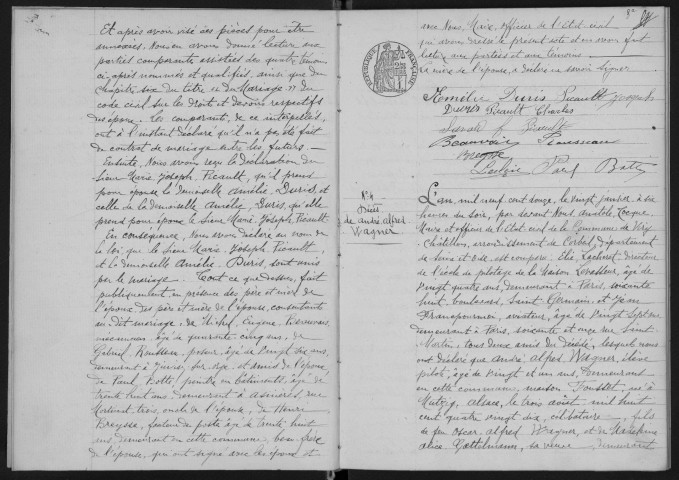 Et après avoir visé ces pièces pour être
annexées, Nous en avons donné lecture aux
parties comparante assistées des quatre témoins
ci-après nommés et qualifiés, ainsi que du
chapitre six du titre du Mariage
code civil sur les droit et devoirs respectifs
des époux. Les comparants, de ce interpellés,
ont à l'instant déclaré qu'il n'a pas été fait
de contrat de mariage entre les futurs.
Ensuite, Nous avons reçu la déclaration du
Sieur Marie Joseph Picault, qu'il prend
pour épouse la demoiselle Amélie Duris et
celle de la demoiselle Amélie Duris, qu'elle
prend pour époux le Sieur Marie Joseph Picault
En conséquence, Nous avons déclaré au nom de
la loi, que le Sieur Marie Joseph Picault
et la demoiselle Amélie Duris, sont unis
par le mariage. Tout ce que dessus, fait
publiquement, en présence des père et mère de
l'époux des père et mère de l'épouse, consentants
au dit mariage, de Michel, Eugène,
âgé de quarante cinq ans, de
Gabriel Rousseau, âgé de vingt six ans,
demeurant à et amis de l'époux
de Paul Botte, peintre en bâtiments, âgé de
trente huit ans, demeurant à Asnières, rue
trois, oncle de l'épouse, de Henri
Breysse, facteur de poste âgé de trente huit
ans demeurant en cette commune, beau frère
de l'épouse, qui ont signé avec les époux et
avec Nous, Maire, officier de l'état civil
qui avons rédigé le présent acte et en avons fait
lecture aux parties et aux témoins.
La mère de l'épouse, a déclaré ne savoir signer
RÉPUBLIQUE FRANÇAISE
Amélie Duris Picault Joseph
Picault Charles
Picault
Rousseau
Paul Botte
N° 4
Décès
de André Alfred
Wagner
L'an mil neuf cent douze, le vingt janvier, à six
heures du soir, par devant Nous Anatole
Maire et officier de l'état civil de la Commune de Viry
Châtillon, arrondissement de Corbeil, département
de Seine et Oise est comparu Elie directeur
de l'école de pilotage de la maison âgé de
vingt quatre ans, demeurant à Paris, soixante
huit boulevard Saint Germain et Jean
aviateur, âgé de vingt sept ans
demeurant à Paris, soixante et onze rue Saint
Martin, tous deux amis du décédé, lesquels nous
ont déclaré que André, Alfred Wagner, élève
pilote, âgé de vingt et un ans, demeurant
en cette commune, maison né à
Mutzig, Alsace, le trois août mil huit
cent quatre vingt dix, célibataire, fils
de feu Oscar Alfred Wagner, et de
Alice sa veuve, demeurant